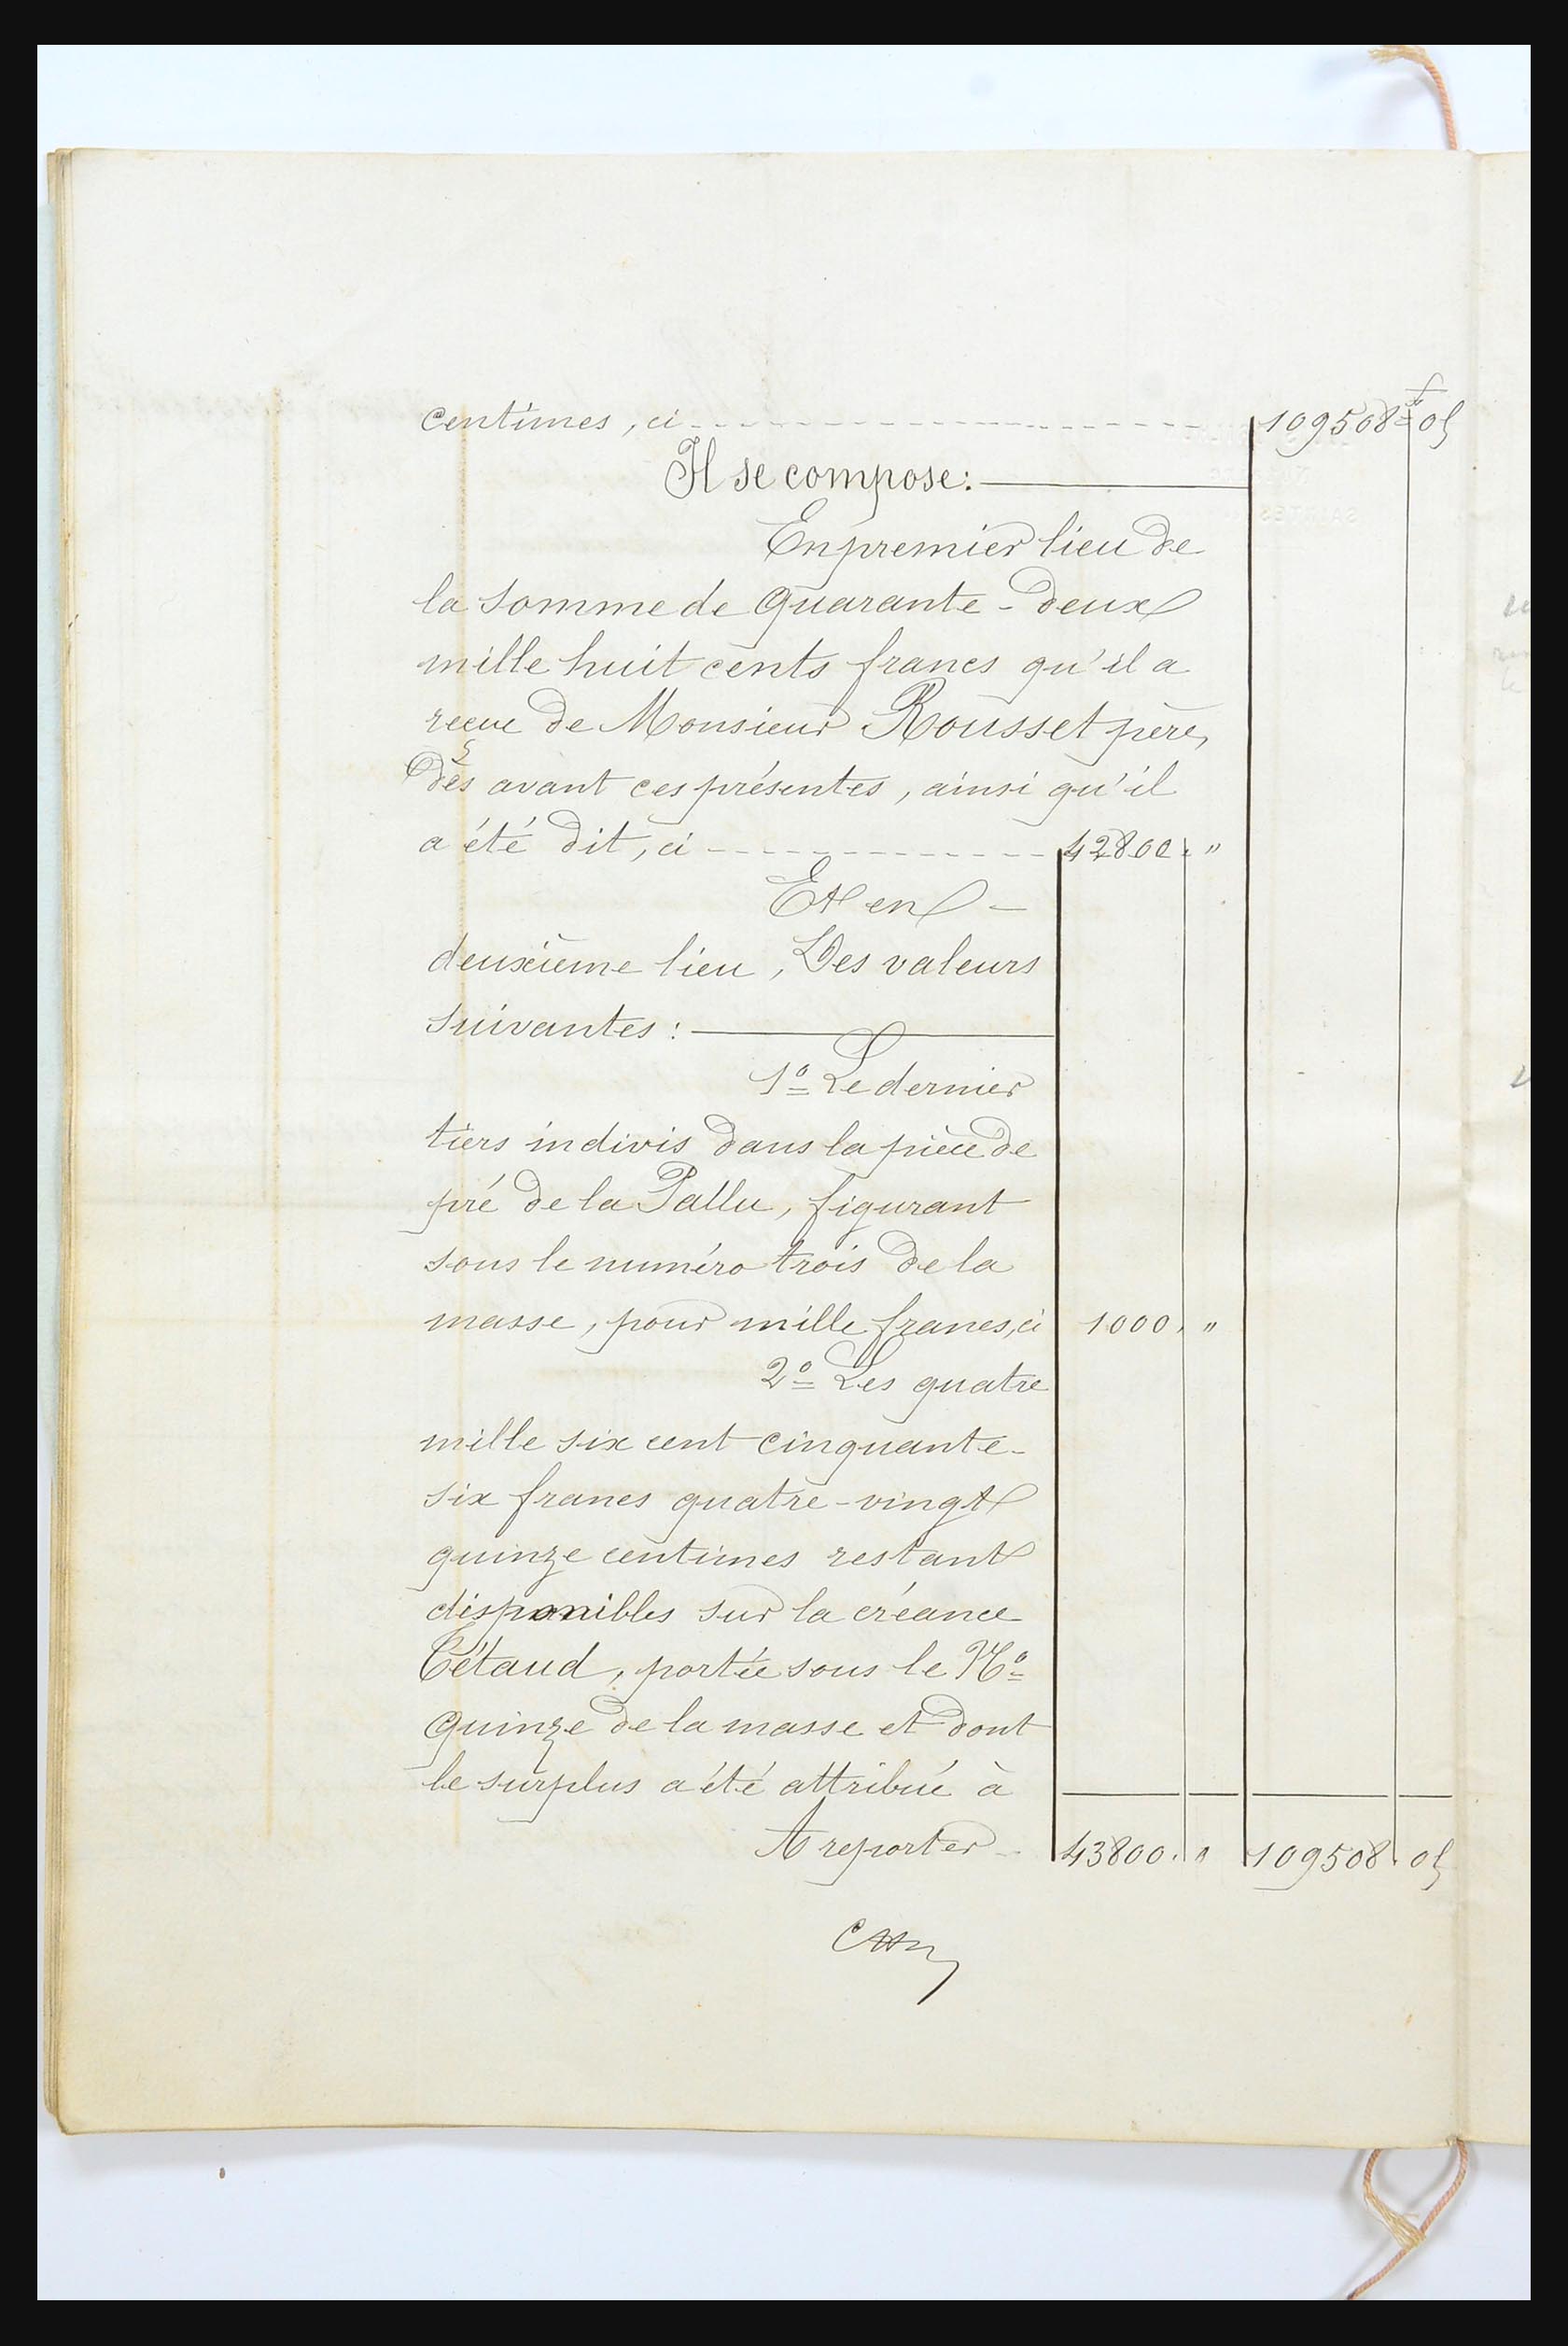 centimes, ci - - - - - - - - - - 109508 f 05
Il se compose :
En premier lieu de
la somme de quarante-deux
mille huit cents francs qu'il a
reçue de Monsieur Rousset père,
dès avant ces présentes, ainsi qu'il
a été dit, ci - - - - - - - 42800. "
Et en -
deuxième lieu, Des valeurs
suivantes :
1º Le dernier
tiers indivis dans la pièce de
pré de la Pallu, figurant
sous le numéro trois de la
masse, pour mille francs, ci 1000. "
2º Les quatre
mille six cent cinquante-
six francs quatre-vingt
quinze centimes restant
disponibles sur la créance
Cétaud, portée sous le Nº
quinze de la masse et dont
le surplus a été attribué à
A reporter - 43800. " 109508. 05